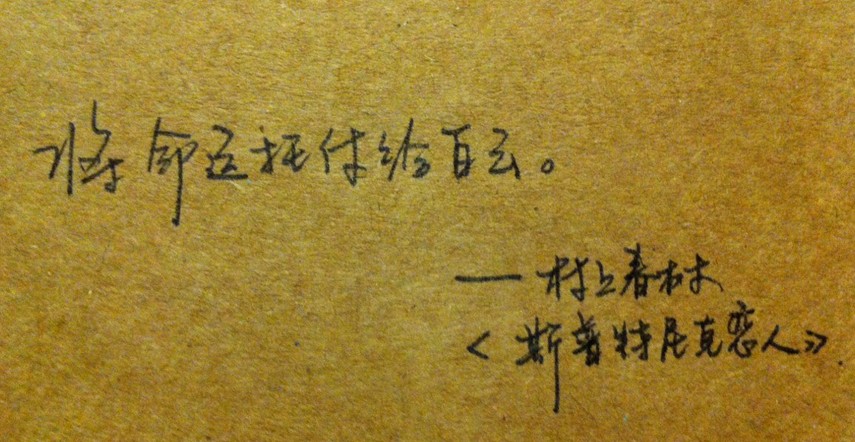 将命运托付给白云。
——村上春树
<斯普特尼克恋人>>.